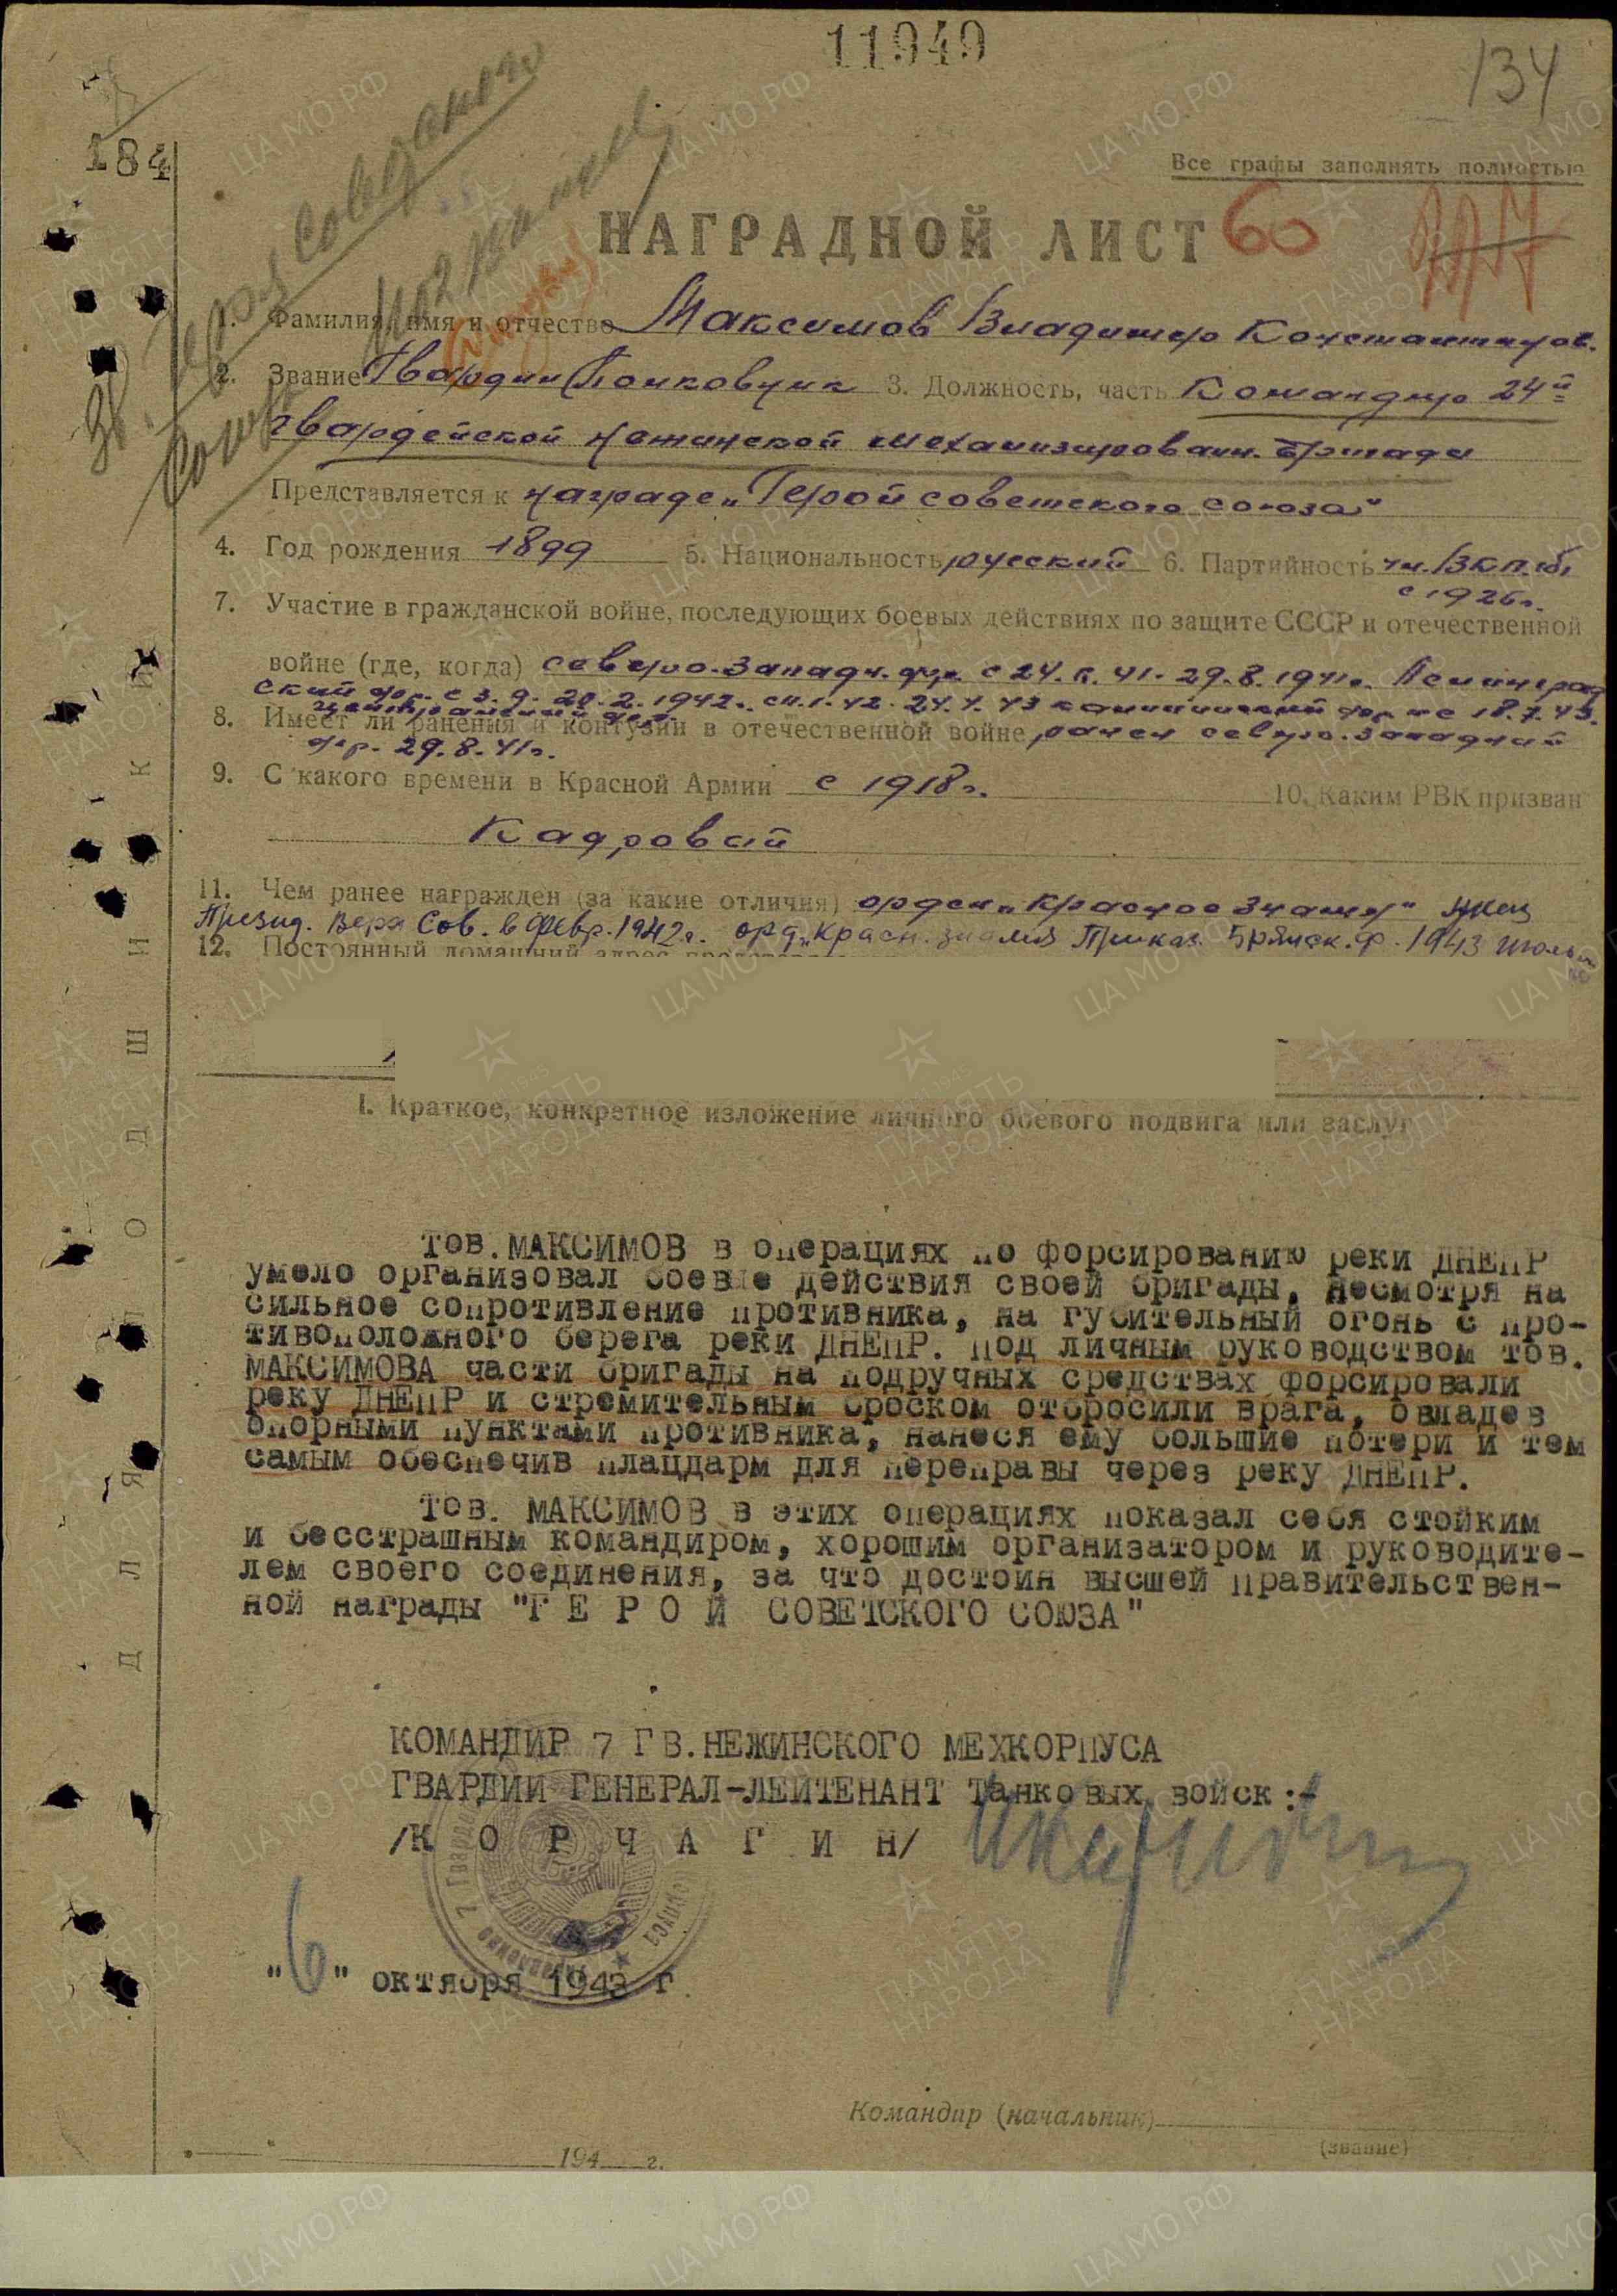 11949
134
184
Все графы заполнять полностью
НАГРАДНОЙ ЛИСТ 60
Герой Советского
Союза
1. Фамилия, имя и отчество Максимов Владимир Константинов.
2. Звание Гвардии Полковник 3. Должность, часть Командир 24й
гвардейской нежинской механизированн. бригады
Представляется к награде „Герой советского союза“
4. Год рождения 1899 5. Национальность русский 6. Партийность чл. ВКП(б)
с 1926г.
7. Участие в гражданской войне, последующих боевых действиях по защите СССР и отечественной
войне (где, когда) северо-западн. фр. с 24. 41-29.8.1941г. Ленинград
ский фр. с 3.9.-20.2.1942г. 42-24.4.43 калининский фр. с 18.7.43.
центральный фр.
8. Имеет ли ранения и контузии в отечественной войне ранен северо-западный
фр. 29.8.41г.
9. С какого времени в Красной Армии с 1918г. 10. Каким РВК призван
Кадровый
11. Чем ранее награжден (за какие отличия) орден „Красное Знамя“ указ
Презид. Верх Сов. в февр. 1942г. орд. „Красн. знамя Приказ. Брянск. ф. 1943 июль
12. Постоянный домашний адрес
I. Краткое, конкретное изложение личного боевого подвига или заслуг
Тов. МАКСИМОВ в операциях по форсированию реки ДНЕПР
умело организовал боевые действия своей бригады, несмотря на
сильное сопротивление противника, на губительный огонь с про-
тивоположного берега реки ДНЕПР. Под личным руководством тов.
МАКСИМОВА части бригады на подручных средствах форсировали
реку ДНЕПР и стремительным броском отбросили врага, овладев
опорными пунктами противника, нанеся ему большие потери и тем
самым обеспечив плацдарм для переправы через реку ДНЕПР.
Тов. МАКСИМОВ в этих операциях показал себя стойким
и бесстрашным командиром, хорошим организатором и руководите-
лем своего соединения, за что достоин высшей правительствен-
ной награды "Г Е Р О Й СОВЕТСКОГО СОЮЗА"
КОМАНДИР 7 ГВ.НЕЖИНСКОГО МЕХКОРПУСА
ГВАРДИИ ГЕНЕРАЛ-ЛЕЙТЕНАНТ Танковых войск:-
/К О Р Ч А Г И Н/
"6" октября 1943 г
Командир (начальник)
(звание)
194 г.
ДЛЯ ПОДШИВКИ
ЦА МО РФ
ПАМЯТЬ НАРОДА